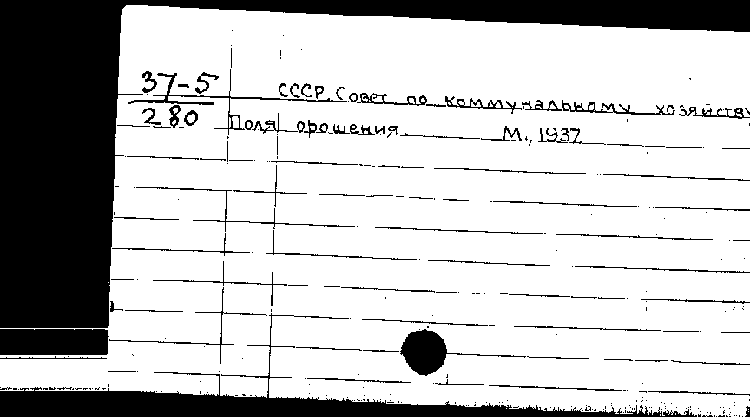 37-5
280
СССР. Совет по коммунальному хозяйству
Поля орошения. М., 1937